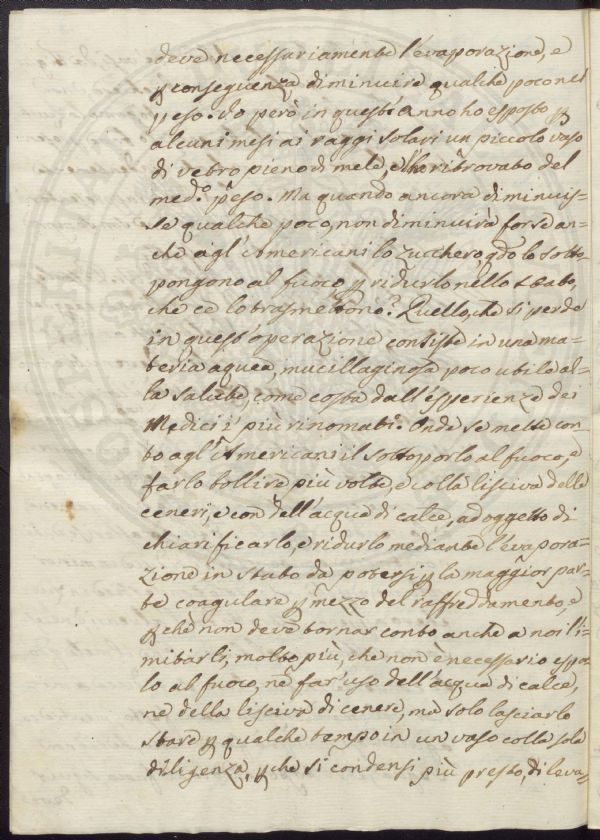 deve necessariamente l'evaporazione, e
p conseguenza diminuire qualche poco nel
peso. Io però in quest'anno ho esposto p
alcuni mesi ai raggi solari un piccolo vaso
di vetro pieno di mele, e l'ho ritrovato del
med.o peso. Ma quando ancora diminuis=
se qualche poco, non diminuirà forse an=
che agl'Americani lo zucchero qdo lo sotto
pongono al fuoco p ridurlo nello stato,
che ce lo trasmettono? Quello, che si perde
in quest'operazione consiste in una ma=
teria aquea, mucillaginosa poco utile al=
la salute, come costa dall'esperienze dei
Medici i più rinomati. Onde se mette con
to agl'Americani il sottoporlo al fuoco, e
farlo bollire più volte, e colla lisciva delle
ceneri, e con dell'acqua di calce, ad oggetto di
chiarificarlo, e ridurlo mediante l'evapora=
zione in stato da potersi p la maggior par=
te coagulare p mezzo del raffreddamento, e
p chè non deve tornar conto anche a noi l'i=
mitarli, molto più, che non è necessario espor
lo al fuoco, nè far'uso dell'acqua di calce,
nè della lisciva di cenere, ma solo lasciarlo
stare p qualche tempo in un vaso colla sola
diligenza, p che si condensi più presto, di leva=